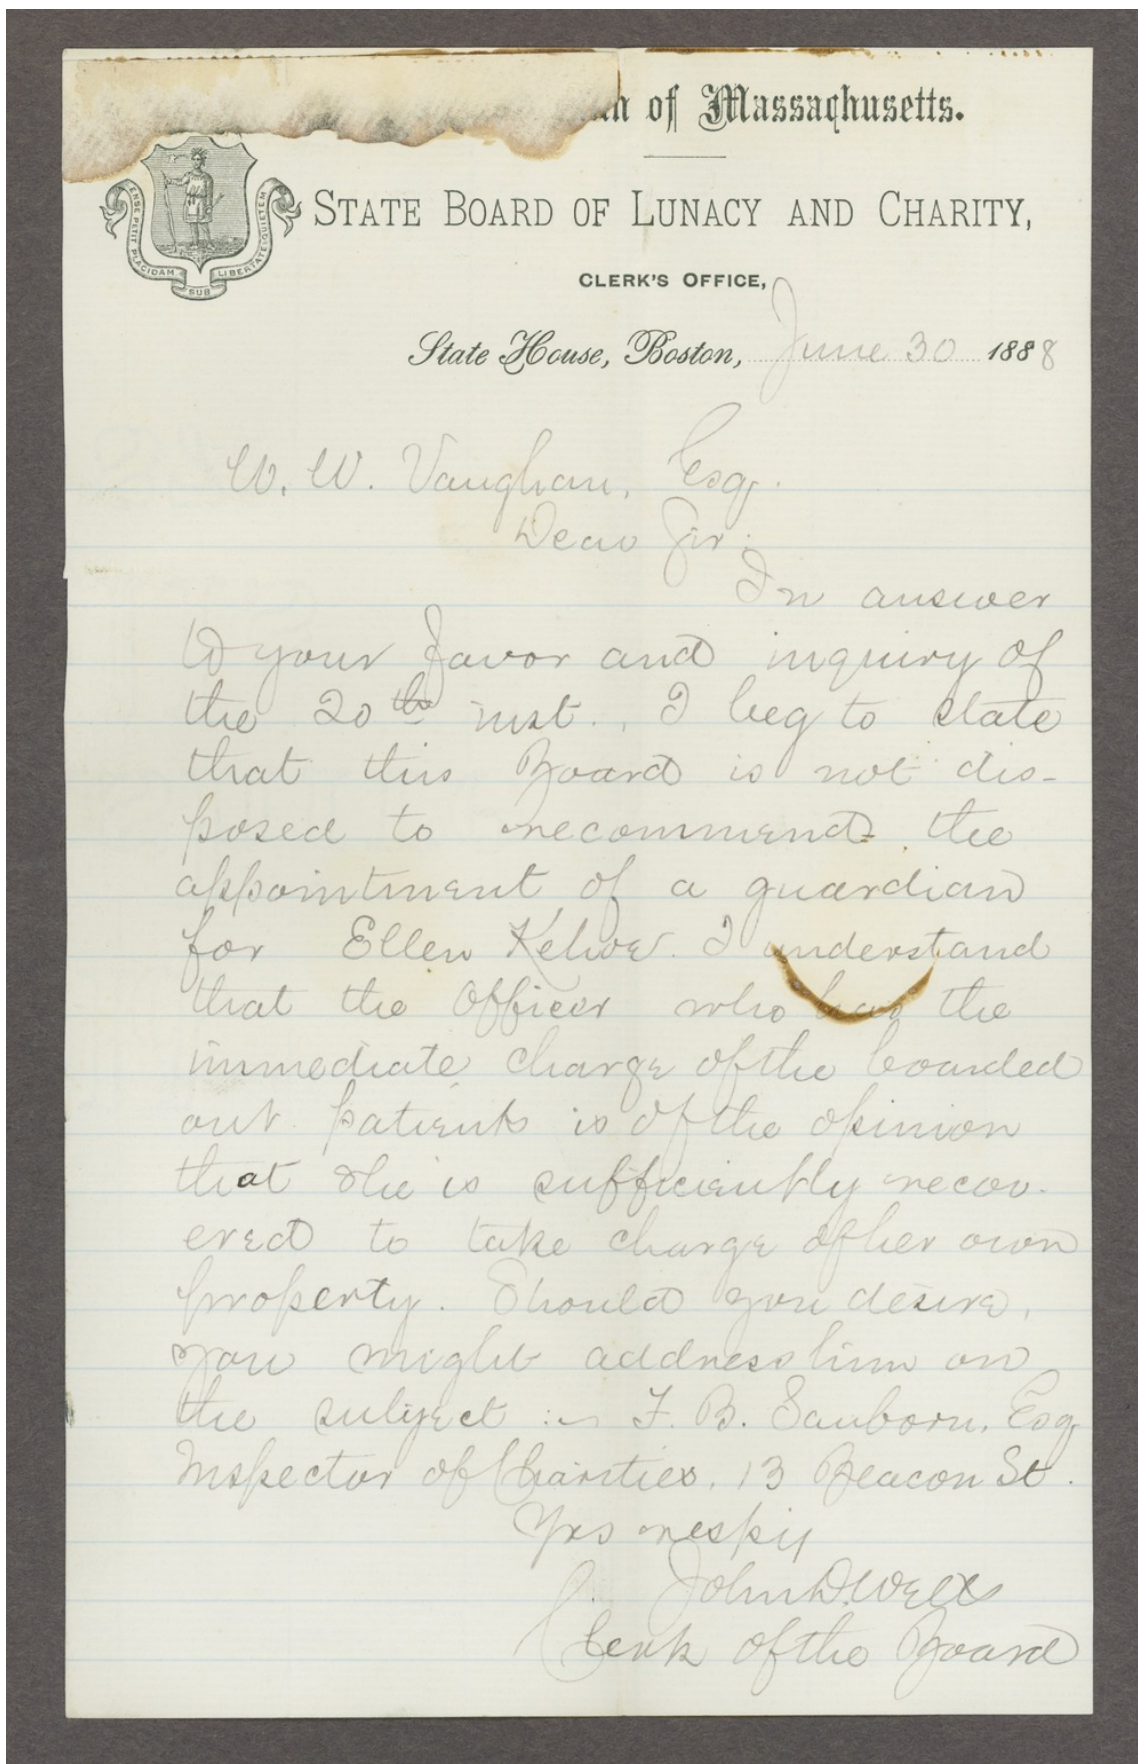 of Massachusetts.
ENSE PETIT PLACIDAM SUB LIBERTATE QUIETEM
STATE BOARD OF LUNACY AND CHARITY,
CLERK'S OFFICE,
State House, Boston, June 30 1888
W. W. Vaughan, Esq.
Dear Sir:
In answer
to your favor and inquiry of
the 20th inst., I beg to state
that this Board is not dis-
posed to recommend the
appointment of a guardian
for Ellen I understand
that the officer who has the
immediate charge of the boarded
out patients is of the opinion
that she is sufficiently recov-
ered to take charge of her own
property. Should you desire,
you might address him on
the subject :- F. B. Sanborn, Esq
Inspector of Charities, 13 Beacon St.
Yrs respy
John D. Wells
Clerk of the Board